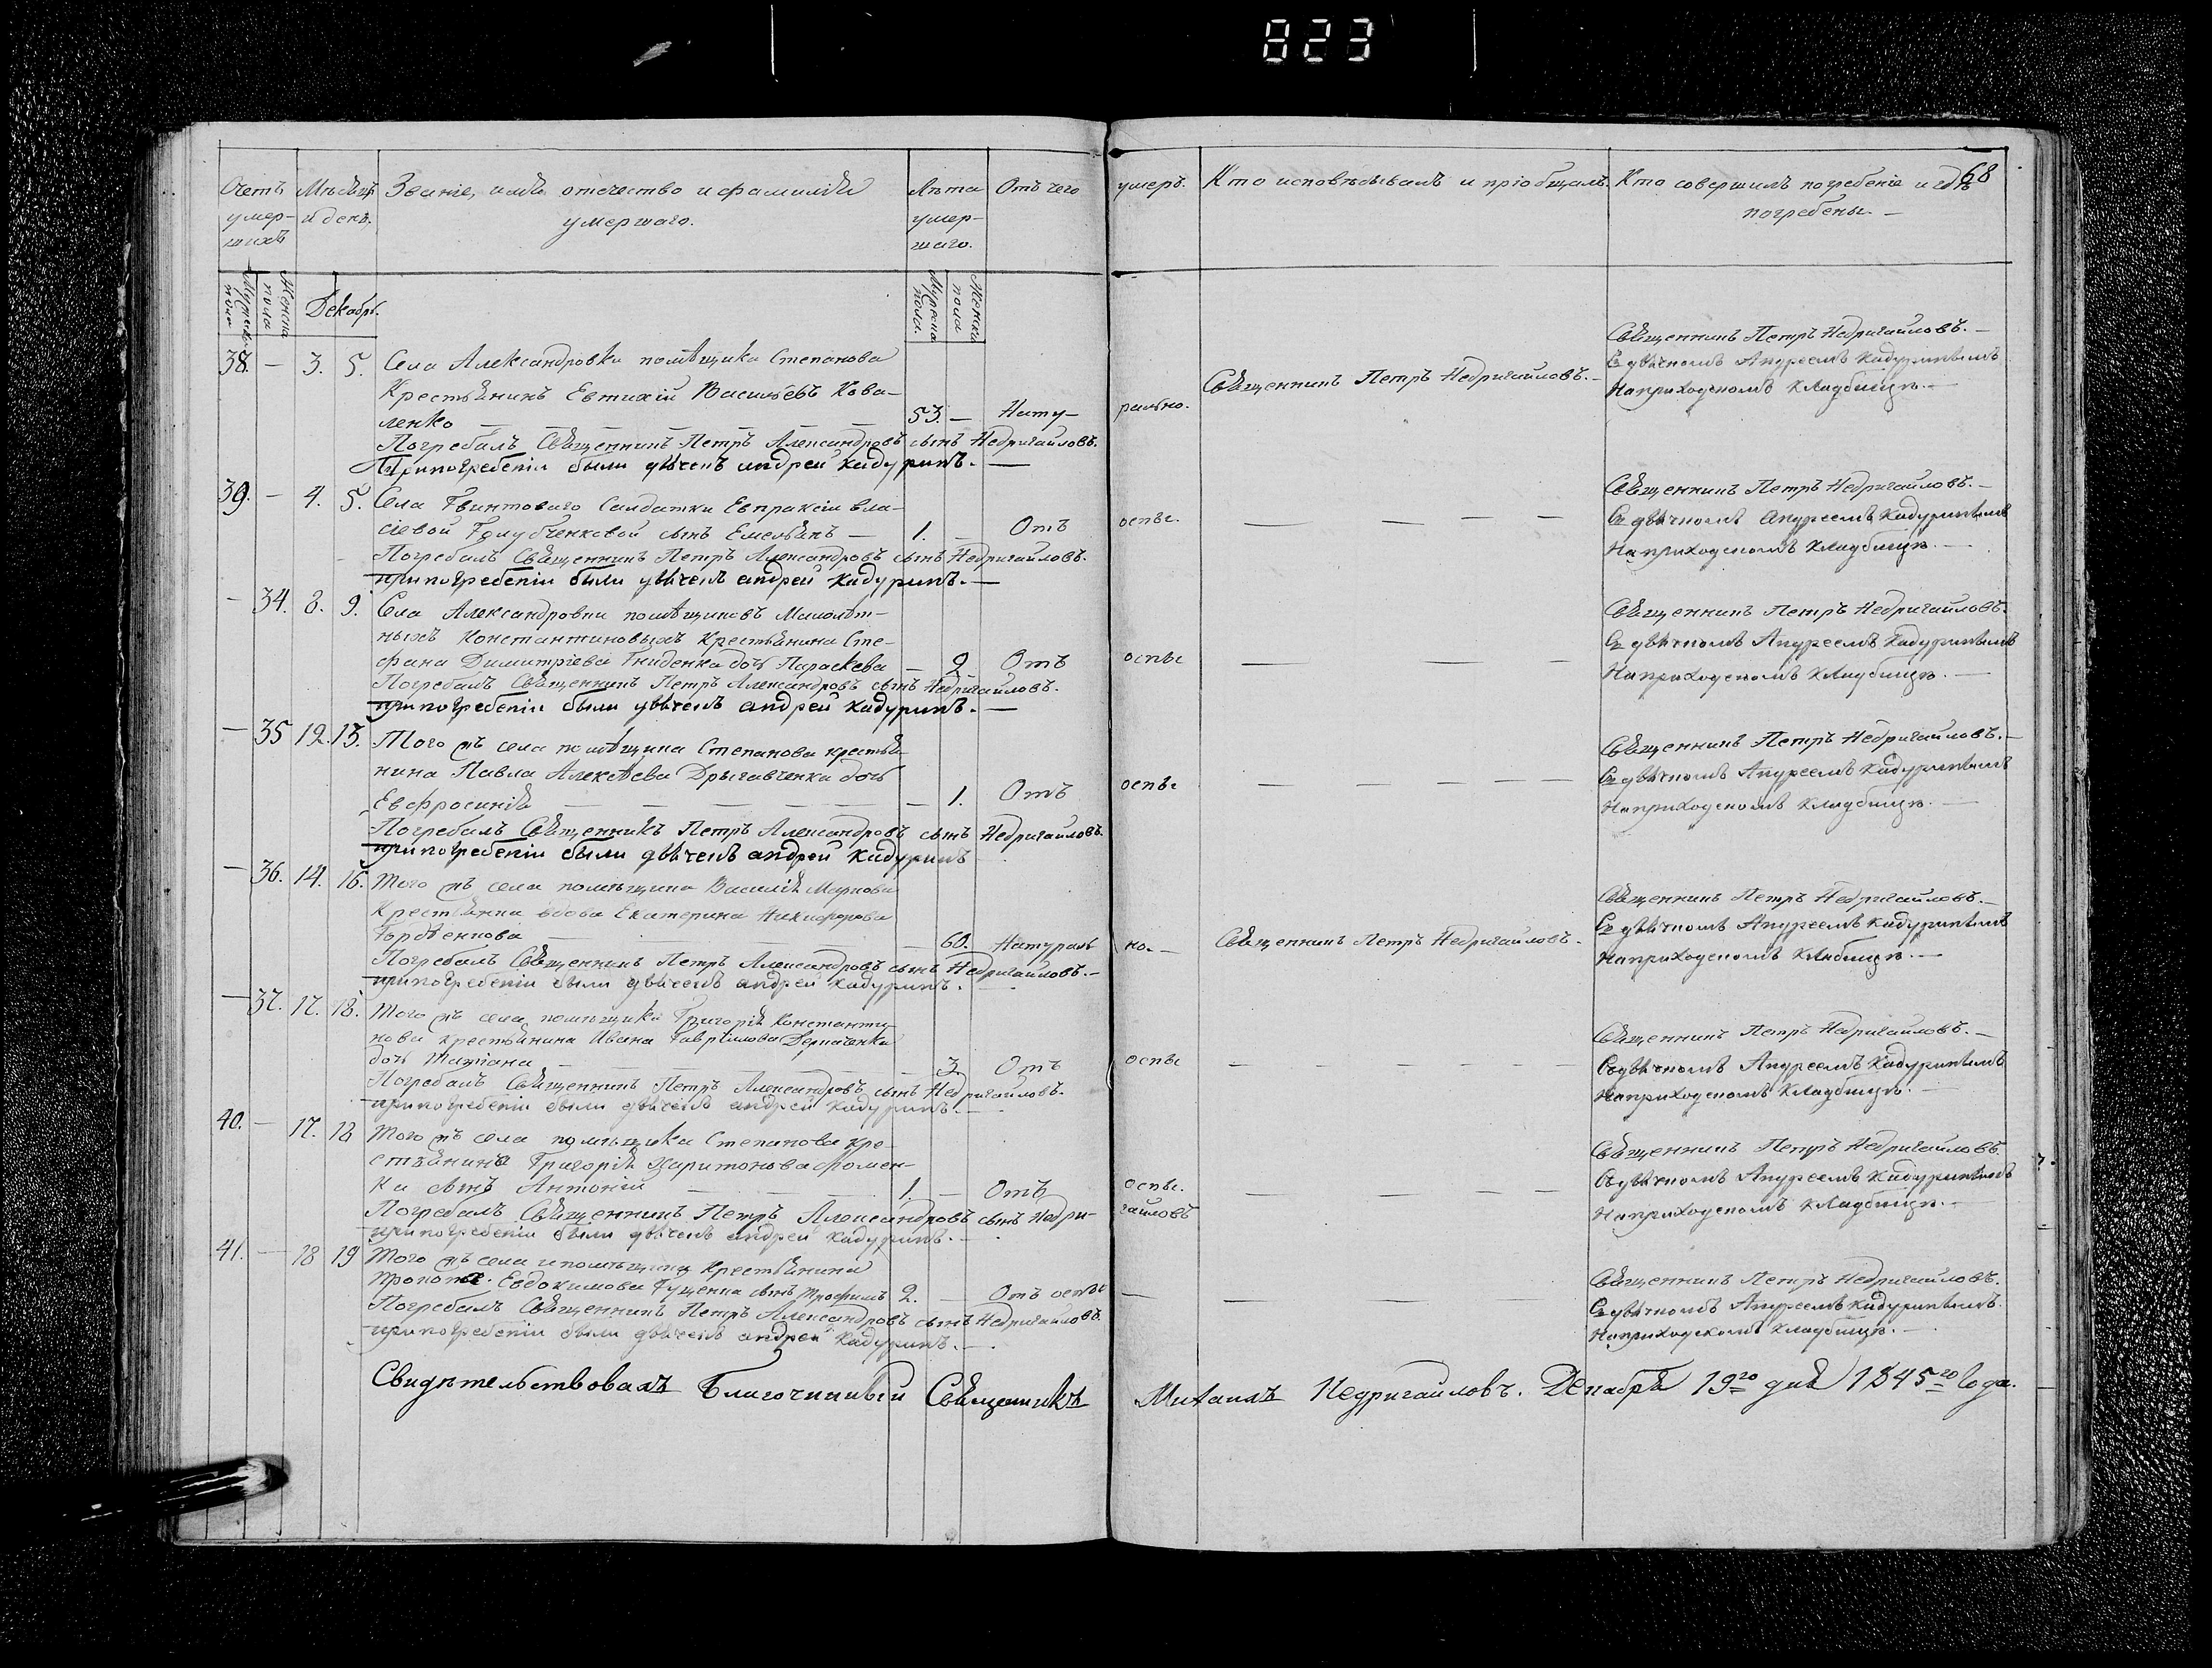 823
68
Счетъ умер-шихъ
Мѣсяцъ и день.
Званіе, имя отечество и фамилія умершаго.
Лѣта умер-шаго.
Отъ чего умеръ.
Кто исповѣдывалъ и пріобщалъ.
Кто совершилъ погребеніе и гдѣ погребены.
Мужеска пола
Женска пола
Декабрь.
Мужеска пола.
Женска пола
38. — 3. 5. Села Александровки помѣщика Степанова
Крестьянинъ Евтихій Васильевъ Кова-
ленко — 53. — Нату- рально.
Священникъ Петръ Недригайловъ.
Погребалъ Священникъ Петръ Александровъ сынъ Недригайловъ.
При погребеніи были дьячекъ андрей кадуринъ. —
Священникъ Петръ Недригайловъ. —
Съ дьячкомъ Андреемъ Кадуринымъ
На приходскомъ кладбищѣ. —
39. — 4. 5. Села Гвинтоваго Салдатки Евпраксіи Вла-
сіевой Голубченковой сынъ Емельянъ — 1. — Отъ оспы.
Погребалъ Священникъ Петръ Александровъ сынъ Недригайловъ.
при погребеніи были дьячекъ андрей кадуринъ. —
Священникъ Петръ Недригайловъ. —
Съ дьячкомъ Андреемъ Кадуринымъ
На приходскомъ кладбищѣ. —
— 34. 8. 9. Села Александровки помѣщиковъ Малолѣт-
ныхъ Константиновыхъ Крестьянина Сте-
фана Димитріева Гниденка дочь Параскева — 2 Отъ оспы
Погребалъ Священникъ Петръ Александровъ сынъ Недригайловъ.
при погребеніи были дьячекъ андрей кадуринъ. —
Священникъ Петръ Недригайловъ.
Съ дьячкомъ Андреемъ Кадуринымъ
На приходскомъ кладбищѣ. —
— 35 12. 13. Того жъ села помѣщика Степанова крестья-
нина Павла Алексѣева Дрыгавченка дочь
Евфросинія — 1. Отъ оспы
Погребалъ Священникъ Петръ Александровъ сынъ Недригайловъ.
при погребеніи были дьячекъ андрей кадуринъ
Священникъ Петръ Недригайловъ. —
Съ дьячкомъ Андреемъ Кадуринымъ
На приходскомъ кладбищѣ. —
— 36. 14. 16. Того жъ села помѣщика Василія Маркова
Крестьянка вдова Екатерина Никифорова
— 60. Натураль но. —
Священникъ Петръ Недригайловъ.
Погребалъ Священникъ Петръ Александровъ сынъ Недригайловъ. —
при погребеніи были дьячекъ андрей кадуринъ. —
Священникъ Петръ Недригайловъ. —
Съ дьячкомъ Андреемъ Кадуринымъ
На приходскомъ кладбищѣ. —
— 37. 17. 18. Того жъ села помѣщика Григорія Константи-
нова крестьянина Ивана Гавріилова
дочь Татіана — 3 Отъ оспы
Погребалъ Священникъ Петръ Александровъ сынъ Недригайловъ.
при погребеніи были дьячекъ андрей кадуринъ. —
Священникъ Петръ Недригайловъ. —
Съ дьячкомъ Андреемъ Кадуринымъ
На приходскомъ кладбищѣ. —
40. — 17. 18 Того жъ села помѣщика Степанова кре-
стьянина Григорія Харитонова Фомен-
ки сынъ Антоній — 1. — Отъ оспы.
Погребалъ Священникъ Петръ Александровъ сынъ Недри- гайловъ
при погребеніи были дьячекъ андрей кадуринъ. —
Священникъ Петръ Недригайловъ.
Съ дьячкомъ Андреемъ Кадуринымъ
На приходскомъ кладбищѣ. —
41. — 18 19 Того жъ села и помѣщика Крестьянина
Евдокимова Гущенка сынъ Трофимъ 2. — Отъ оспы
Погребалъ Священникъ Петръ Александровъ сынъ Недригайловъ.
при погребеніи были дьячекъ андрей кадуринъ. —
Священникъ Петръ Недригайловъ.
Съ дьячкомъ Андреемъ Кадуринымъ.
На приходскомъ кладбищѣ. —
Свидѣтельствовалъ Благочинный Священникъ Михаилъ Недригайловъ. Декабря 19го дня 1845го года.